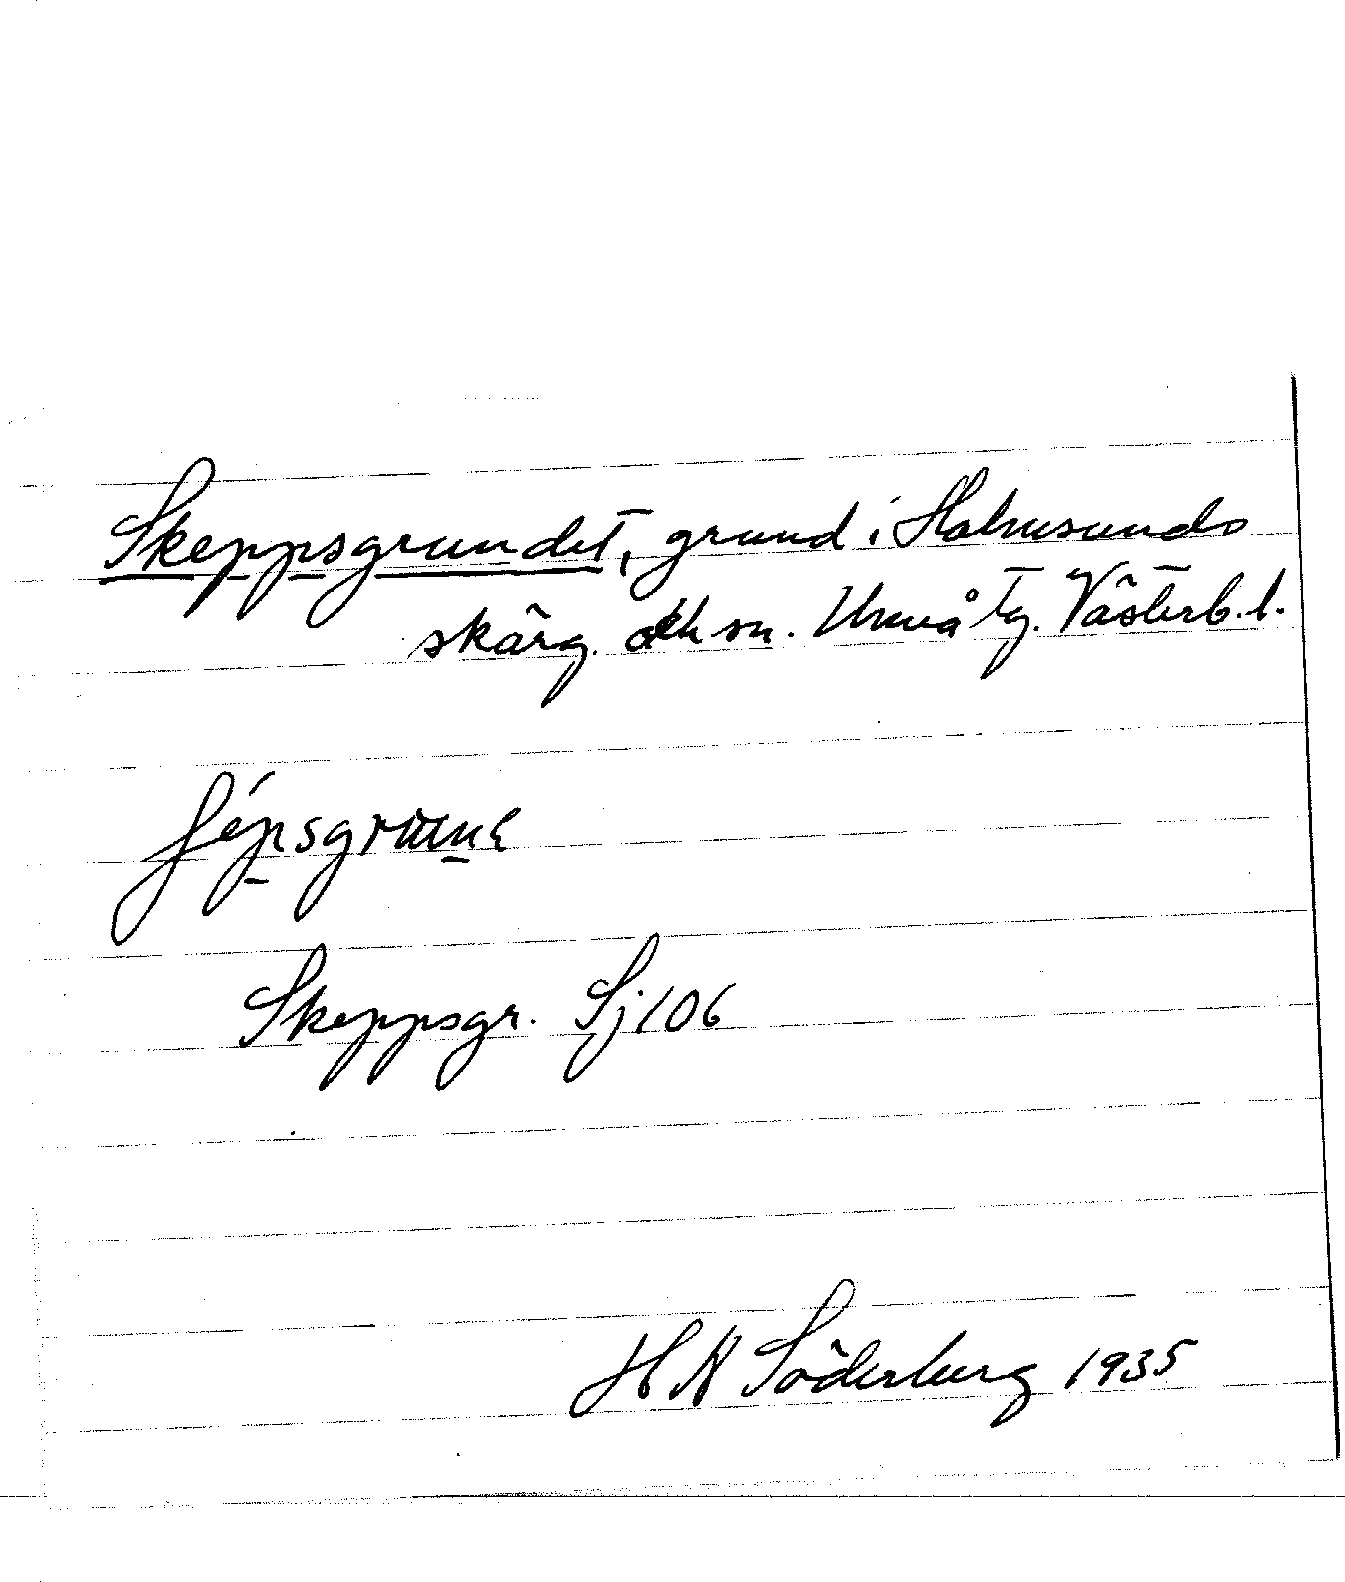 Skeppsgrundet, grund i Holmsunds
skärg. och sn. Umeå tg. Västerb. l.
ʃépsgrunnɛ
Skeppsgr. Sj 106
H N Söderberg 1935